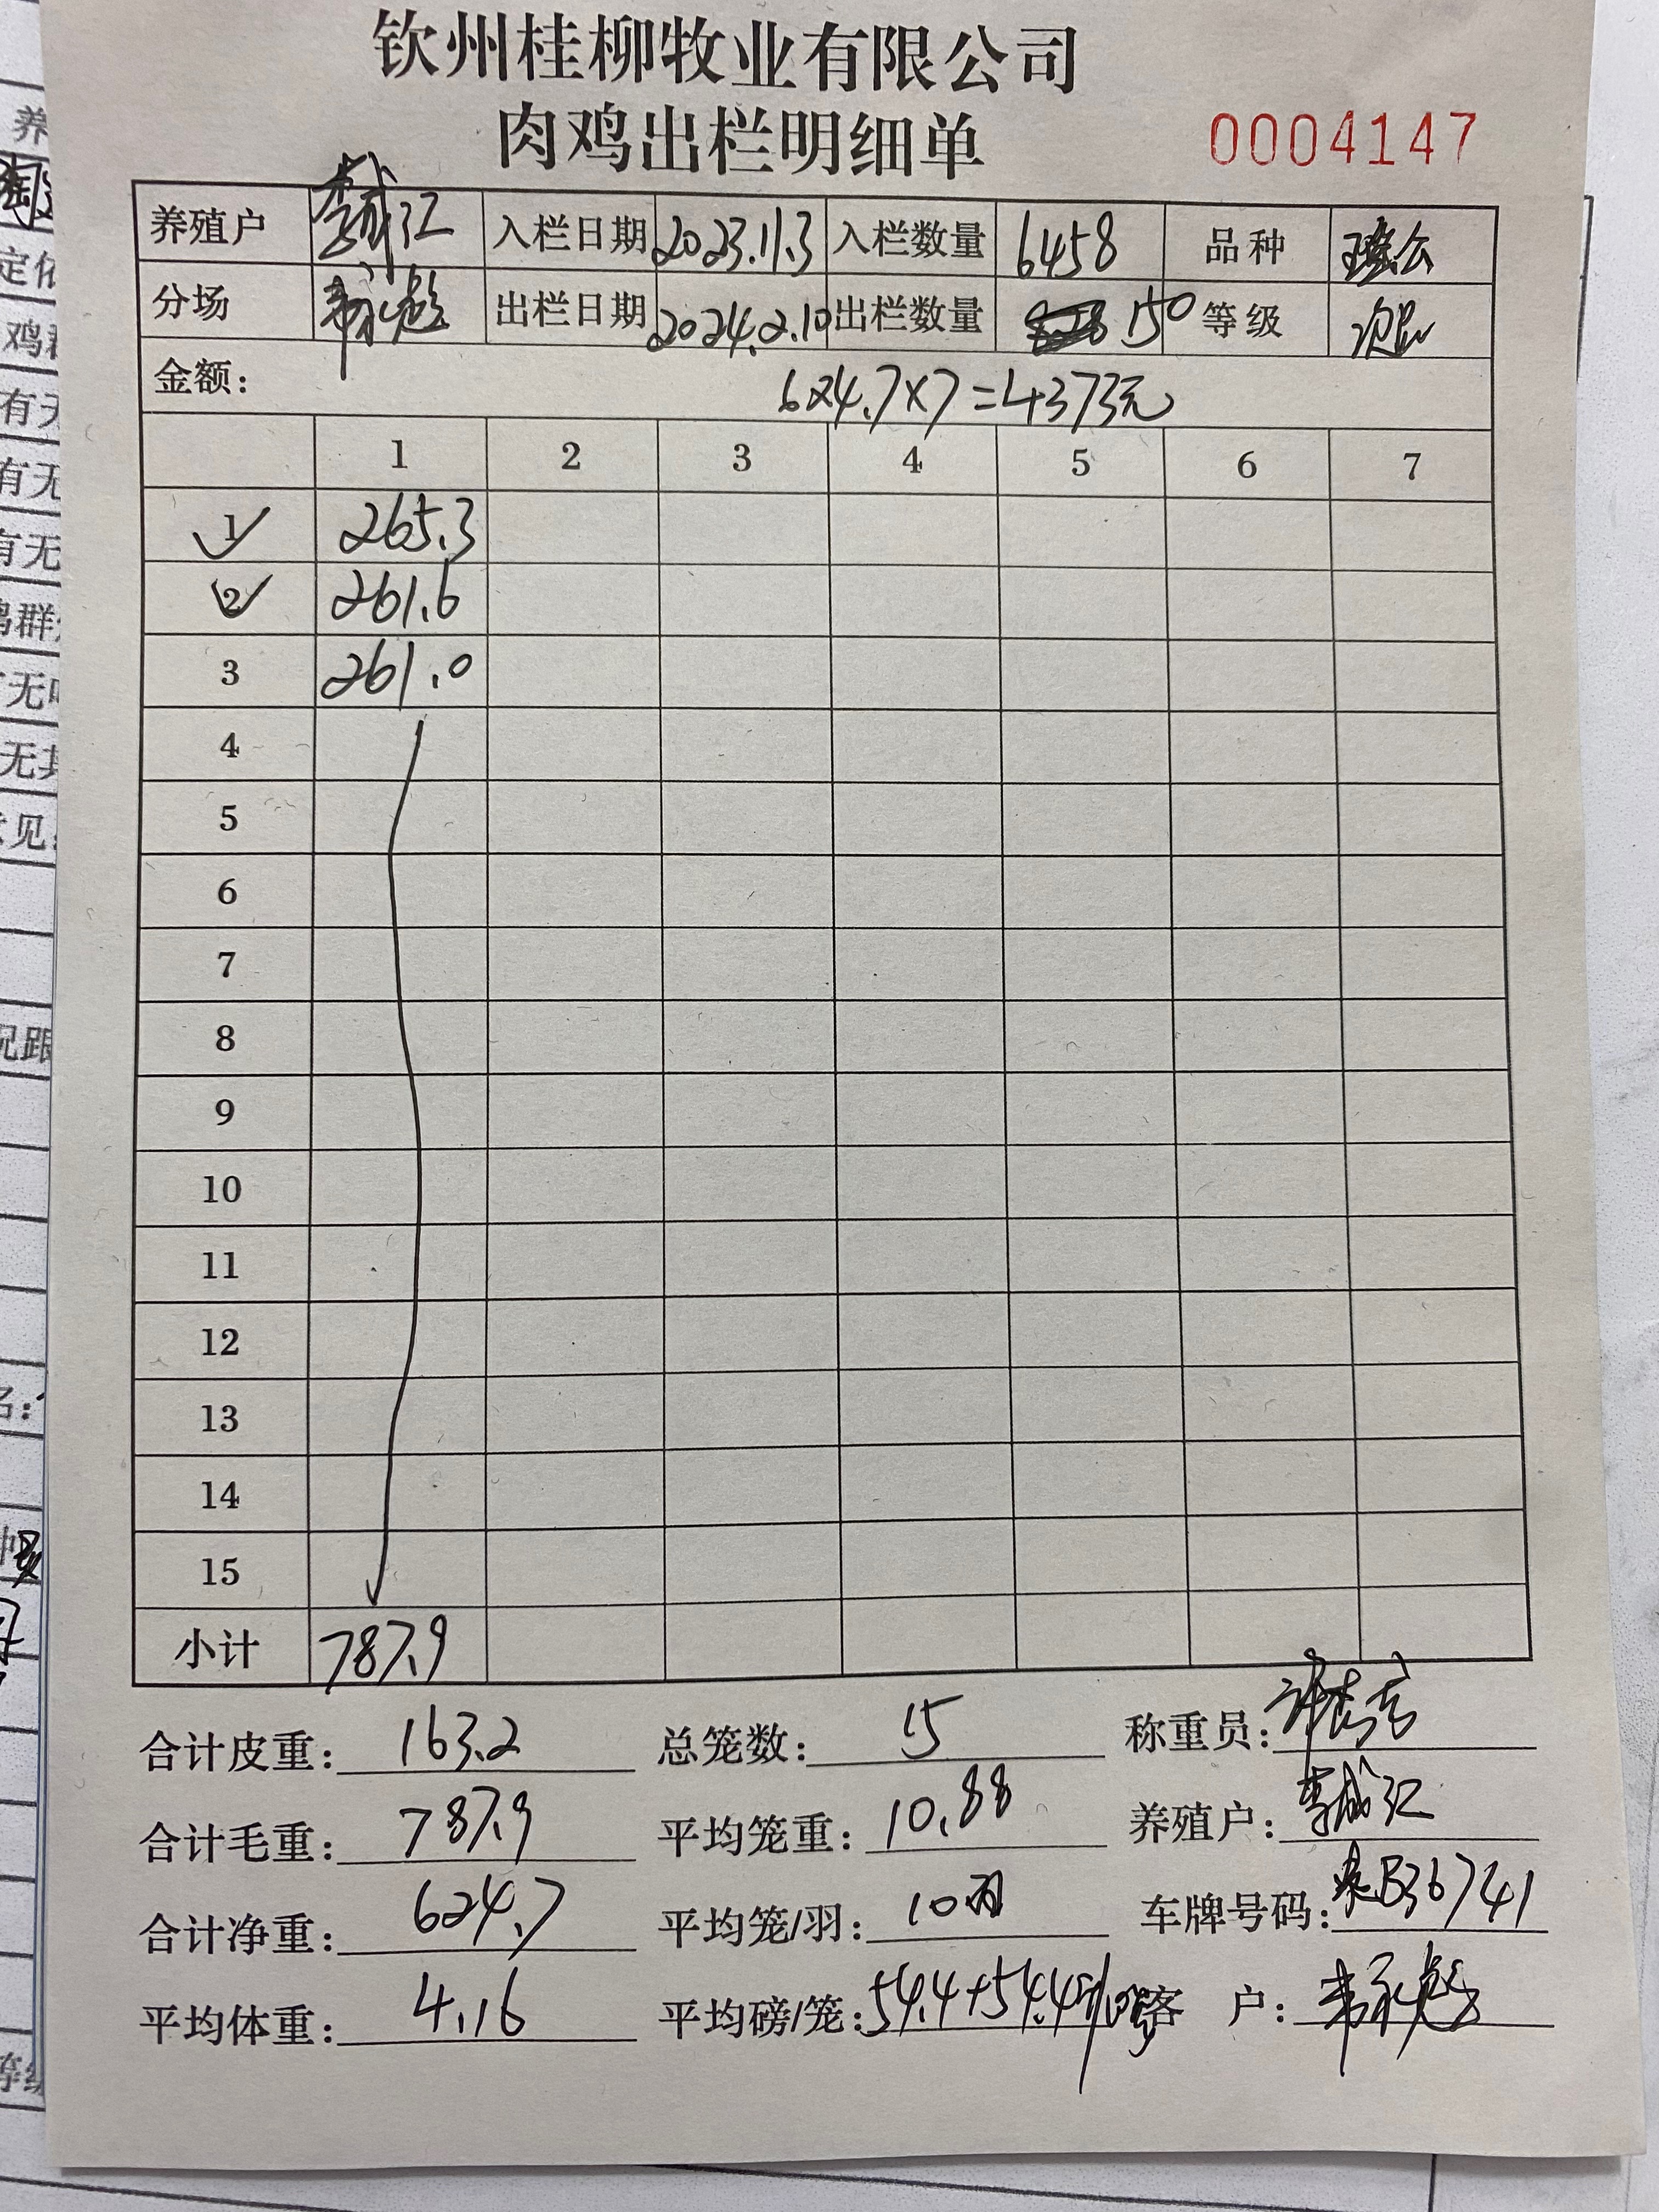 钦州桂柳牧业有限公司
肉鸡出栏明细单 0004147
养殖户 李威江 入栏日期 2023.11.3 入栏数量 6458 品种
分场 韦永超 出栏日期 2024.2.10 出栏数量 150 等级 次品
金额: 624.7×7=4373元
1 2 3 4 5 6 7
1 265.3
2 261.6
3 261.0
4
5
6
7
8
9
10
11
12
13
14
15
小计 787.9
合计皮重: 163.2 总笼数: 15 称重员:
合计毛重: 787.9 平均笼重: 10.88 养殖户: 李威江
合计净重: 624.7 平均笼/羽: 10羽 车牌号码: B36741
平均体重: 4.16 平均磅/笼: 54.4+54.4 客户: 韦永超